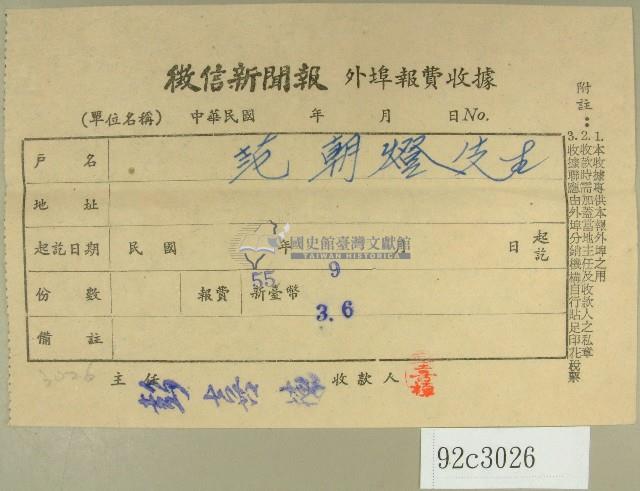 徵信新聞報 外埠報費收據
(單位名稱) 中華民國 年 月 日No.
戶名 范朝燈先生
地址
起訖日期 民國 年 日 起訖
55 9
份數 報費 新臺幣
3.6
備註
主任 收款人
3026
附註：
1.本收據專供本報外埠之用
2.收款時需加蓋當地主任及收款人之私章
3.收據聯應由外埠分銷機構自行貼足印花稅票
國史館臺灣文獻館
TAIWAN HISTORICA
92c3026